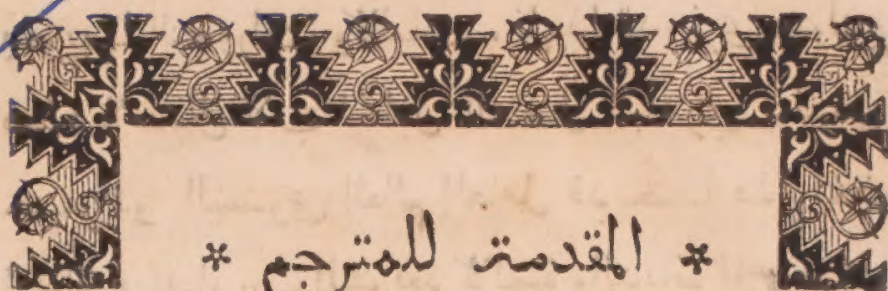 * المقدمة للمترجم *